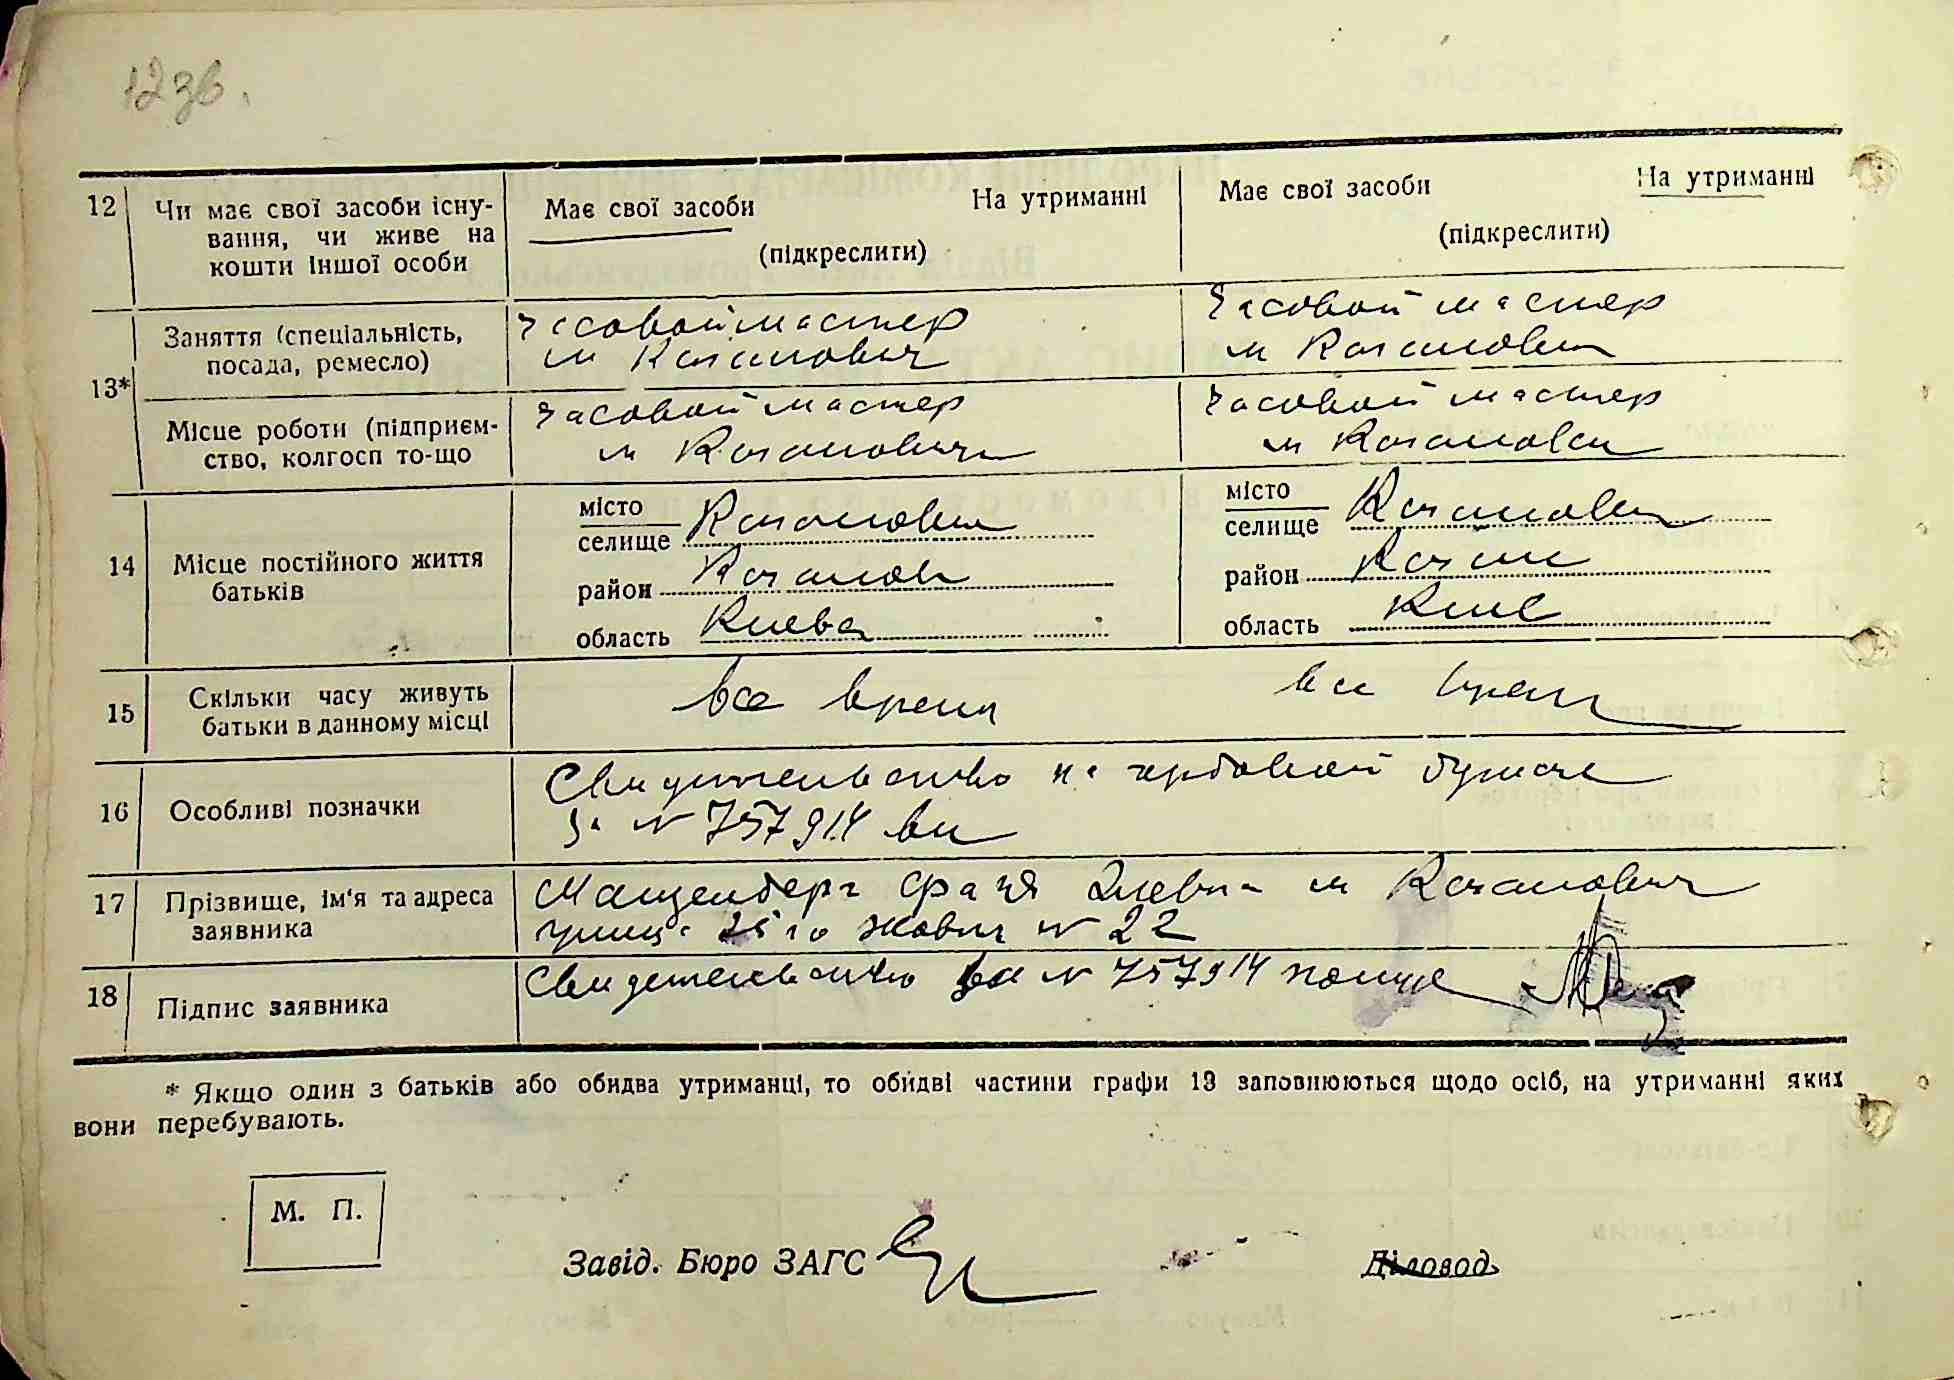 12 зв.
12 Чи має свої засоби існу-
вання, чи живе на
кошти іншої особи
Має свої засоби На утриманні
(підкреслити)
Має свої засоби На утриманні
(підкреслити)
13*
Заняття (спеціальність,
посада, ремесло)
Часовой мастер
м Каганович
Часовой мастер
м Каганович
Місце роботи (підприєм-
ство, колгосп то-що
Часовой мастер
м Каганович
Часовой мастер
м Каганович
14 Місце постійного життя
батьків
місто
селище Каганович
район Каганов
область Киевс
місто
селище Каганович
район Каган
область Киев
15 Скільки часу живуть
батьки в данному місці
все время
все время
16 Особливі позначки
Свидетельство на гербовой бумаге
за № 757914
17 Прізвище, ім'я та адреса
заявника
Фаня м Каганович
улица 25 го Жовтн № 22
18 Підпис заявника
Свидетельство за № 757914
* Якщо один з батьків або обидва утриманці, то обидві частини графи 13 заповнюються щодо осіб, на утриманні яких
вони перебувають.
М. П.
Завід. Бюро ЗАГС
Діловод